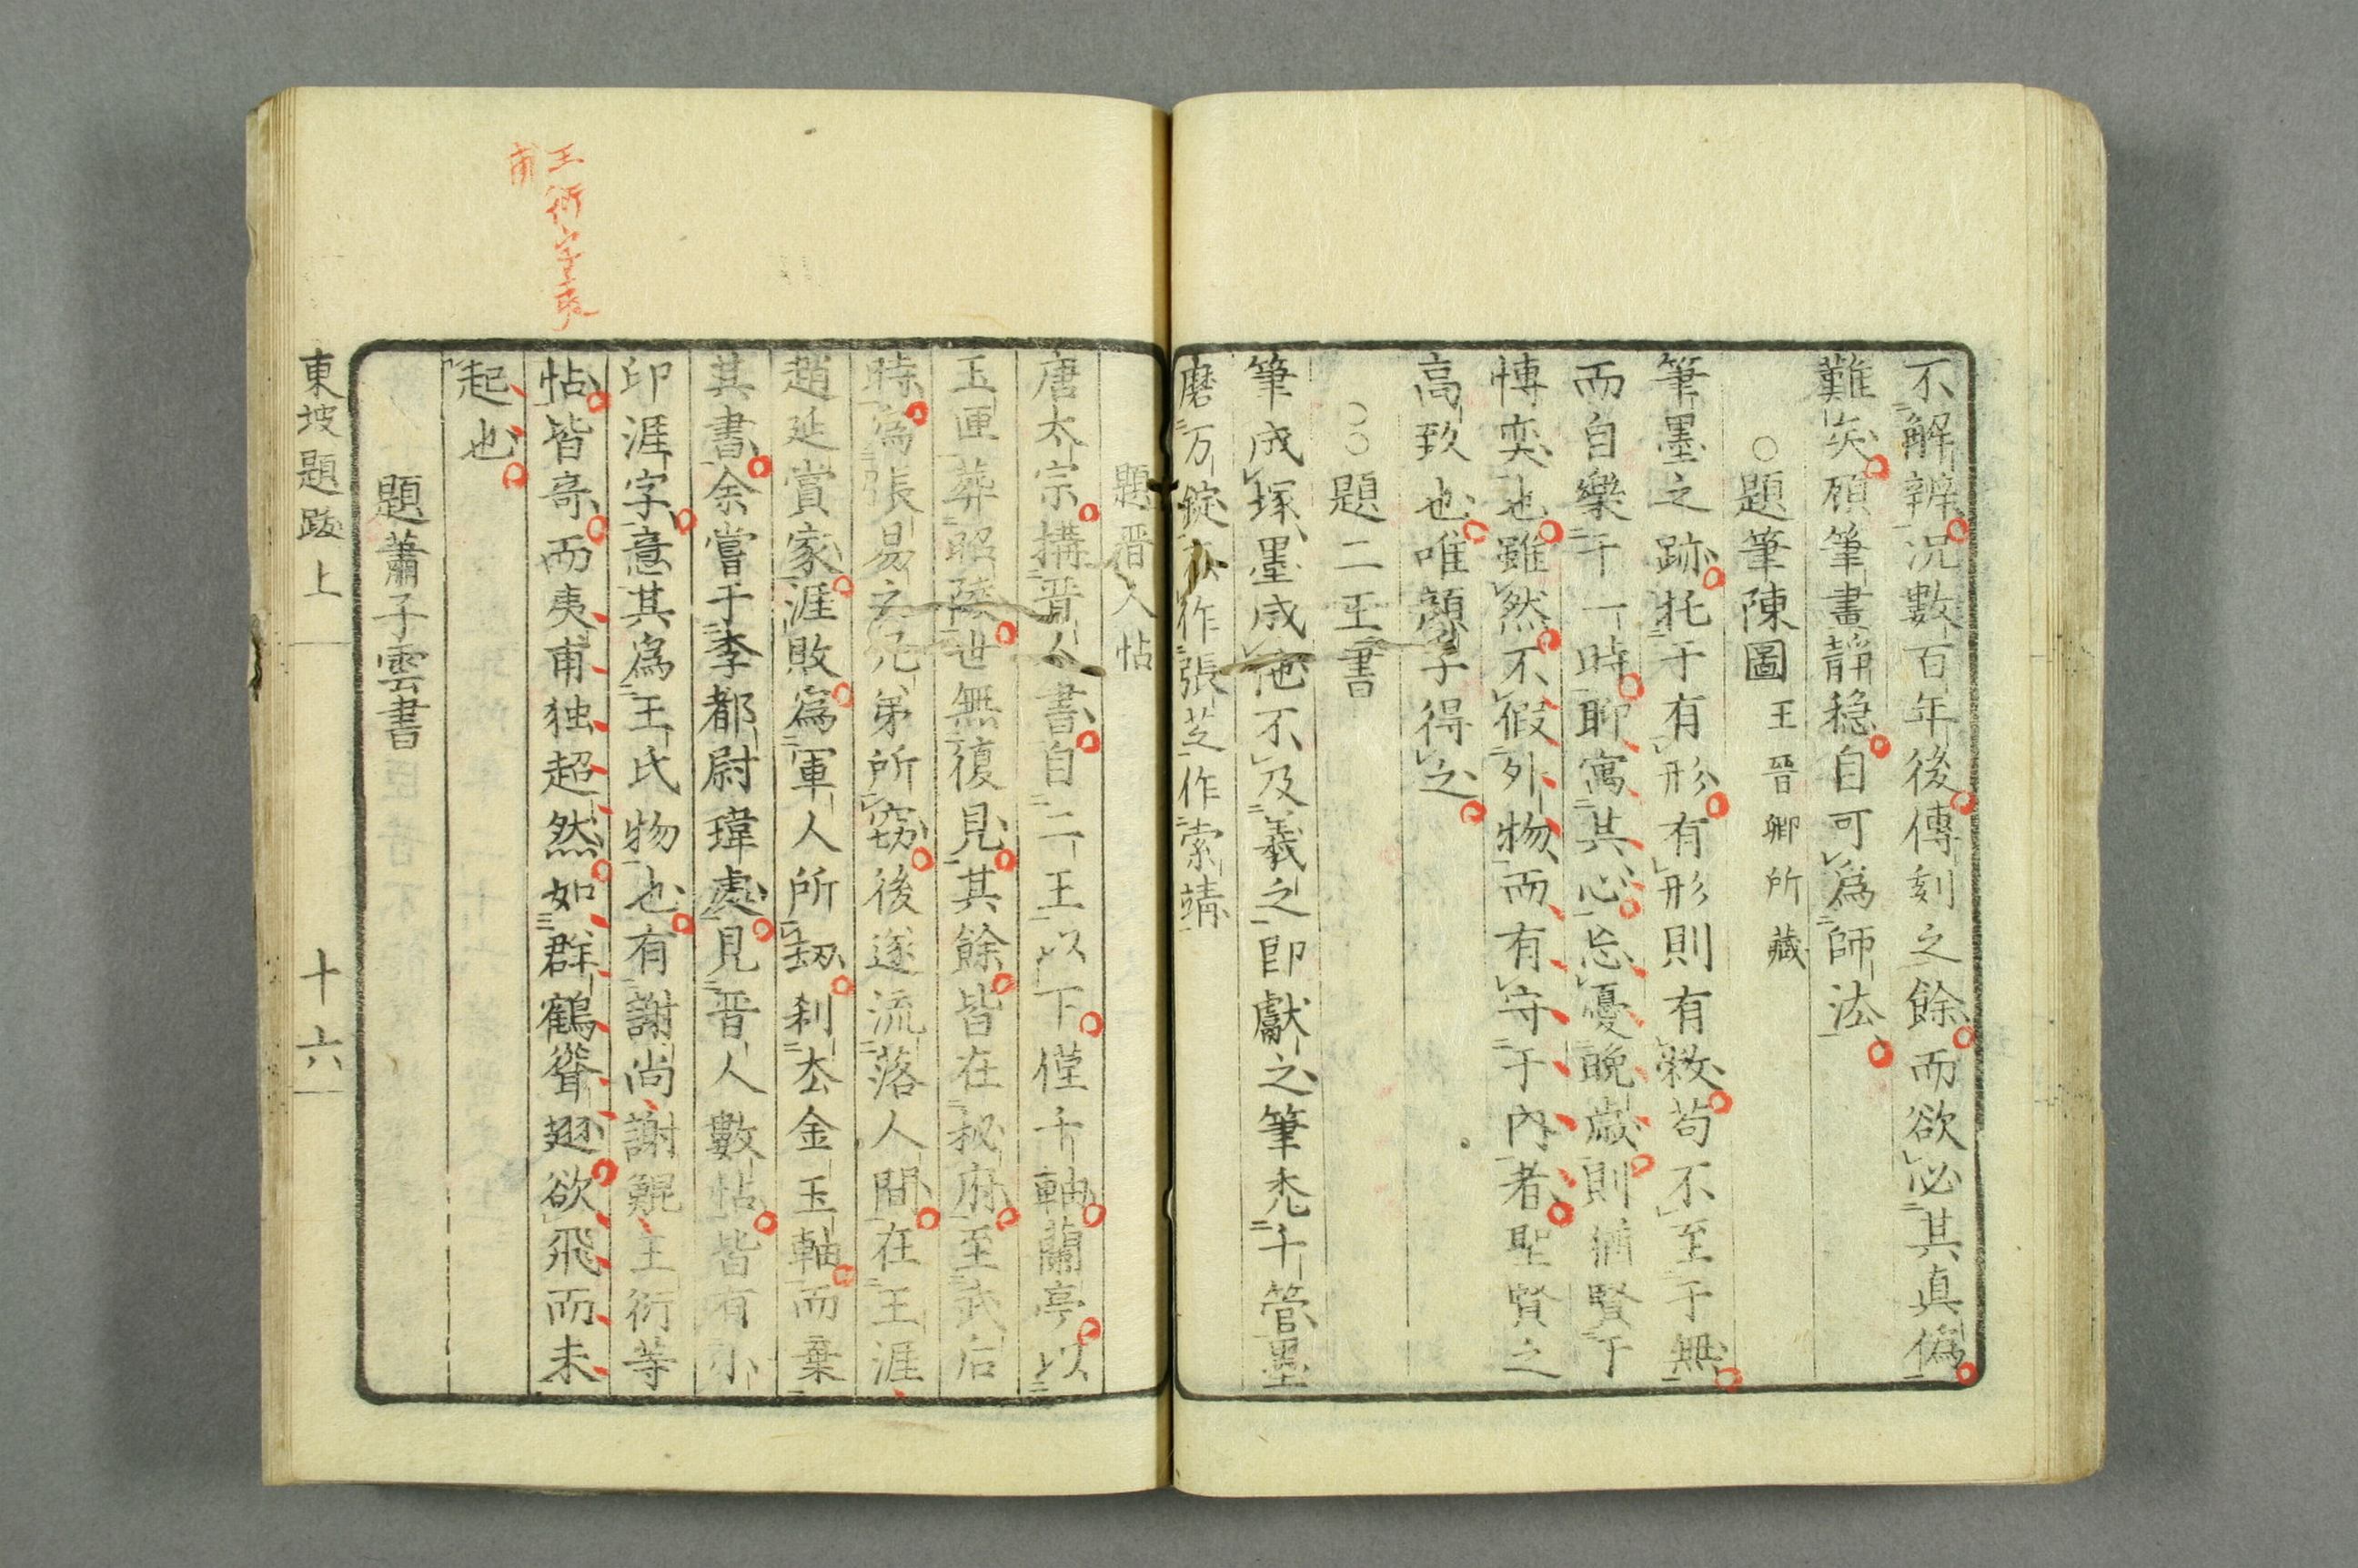 不解辨況數百年後傳刻之餘而欲必其真偽
難矣顧筆畫静穏自可為師法
○題筆陳圖 王晉卿所藏
筆墨之跡托于有形有形則有弊苟不至于無
而自樂于一時聊寓其心忘憂晩歳則猶賢于
博奕也雖然不假外物而有守于内者聖賢之
高致也唯顔子得之
○○題二王書
筆成塚墨成池不及羲之即獻之筆禿千管墨
磨万錠不作張芝作索靖
題晋人帖
唐太宗搆晋人書自二王以下僅千軸蘭亭以
玉匣葬昭陵世無復見其餘皆在秘府至武后
時為張易之兄弟所窃後遂流落人間在王涯
趙延賞家涯敗為軍人所刼剥去金玉軸而棄
其書余嘗于李都尉瑋處見晋人數帖皆有小
印涯字意其為王氏物也有謝尚謝鯤王衍等
帖皆奇而夷甫独超然如群鶴聳翅欲飛而未
起也
題蕭子雲書
東坡題跋上 十六
王衍字夷
甫